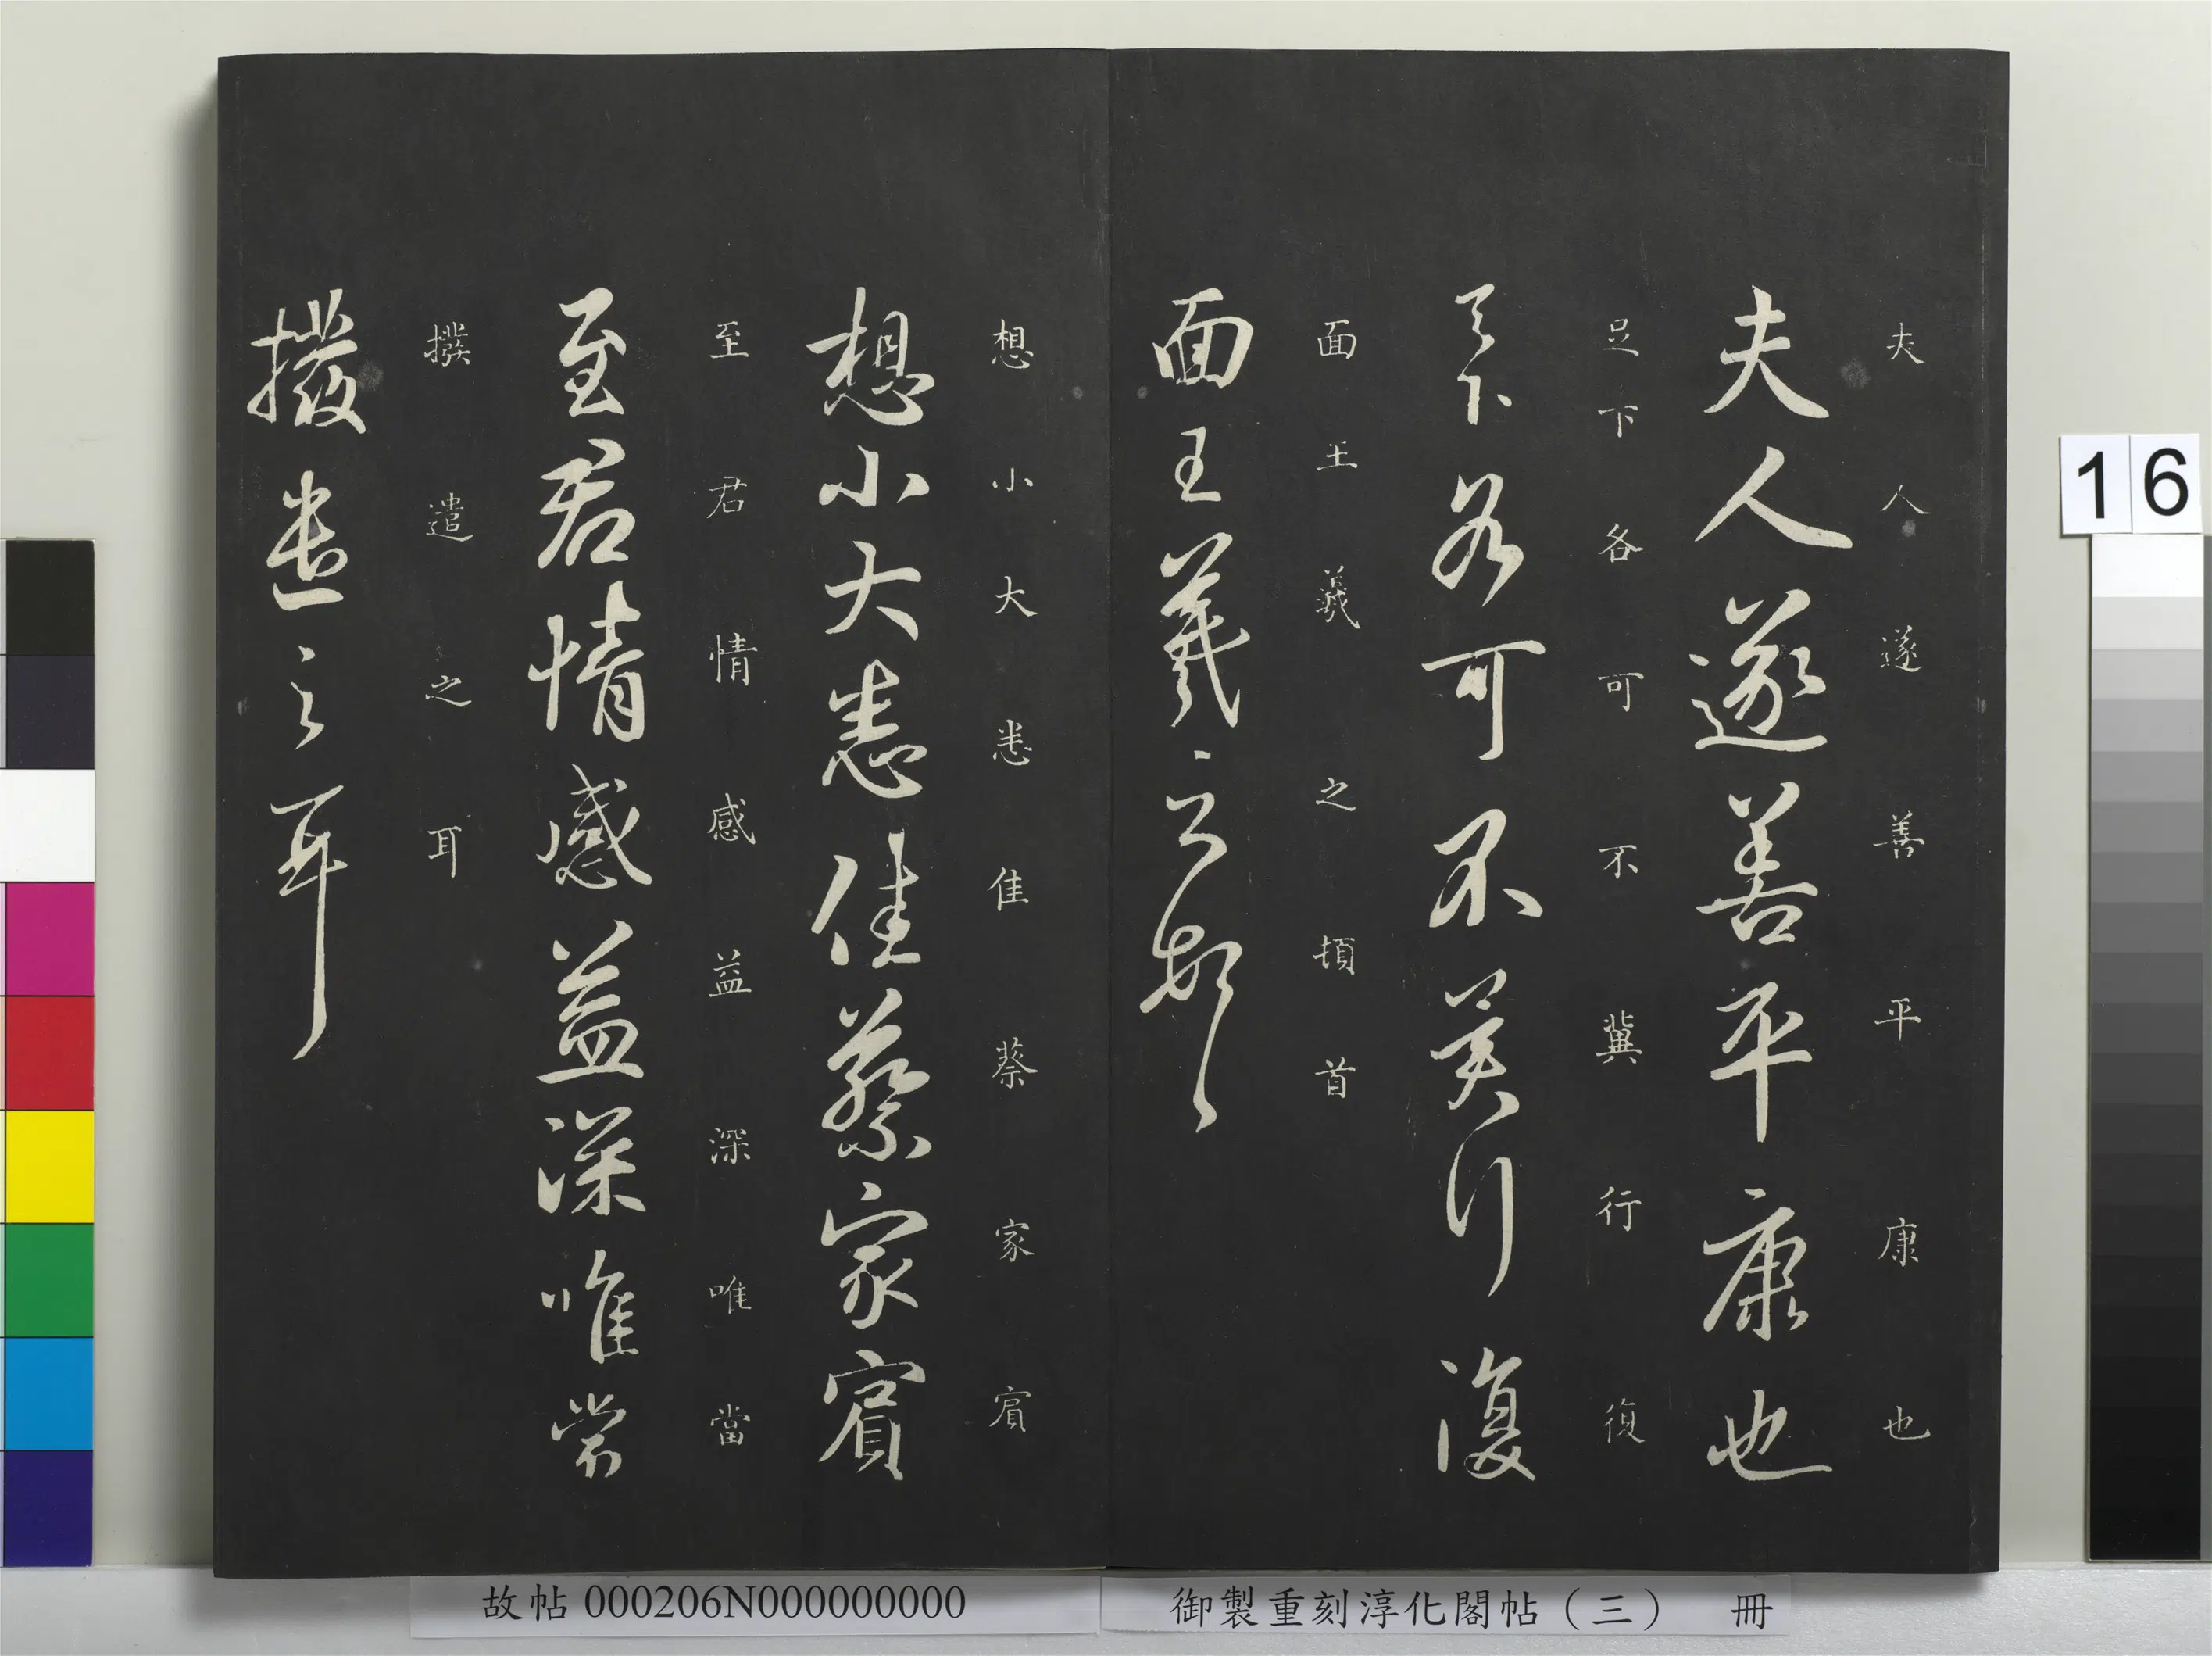 夫人遂善平康也
夫人遂善平康也
足下各可不冀行復
足下各可不冀行復
面王羲之頓首
面王羲之頓首
想小大悉佳蔡家賓
想小大悉佳蔡家賓
至君情感益深唯當
至君情感益深唯當
撥遣之耳
撥遣之耳
16
故帖 000206N000000000
御製重刻淳化閣帖（三） 冊